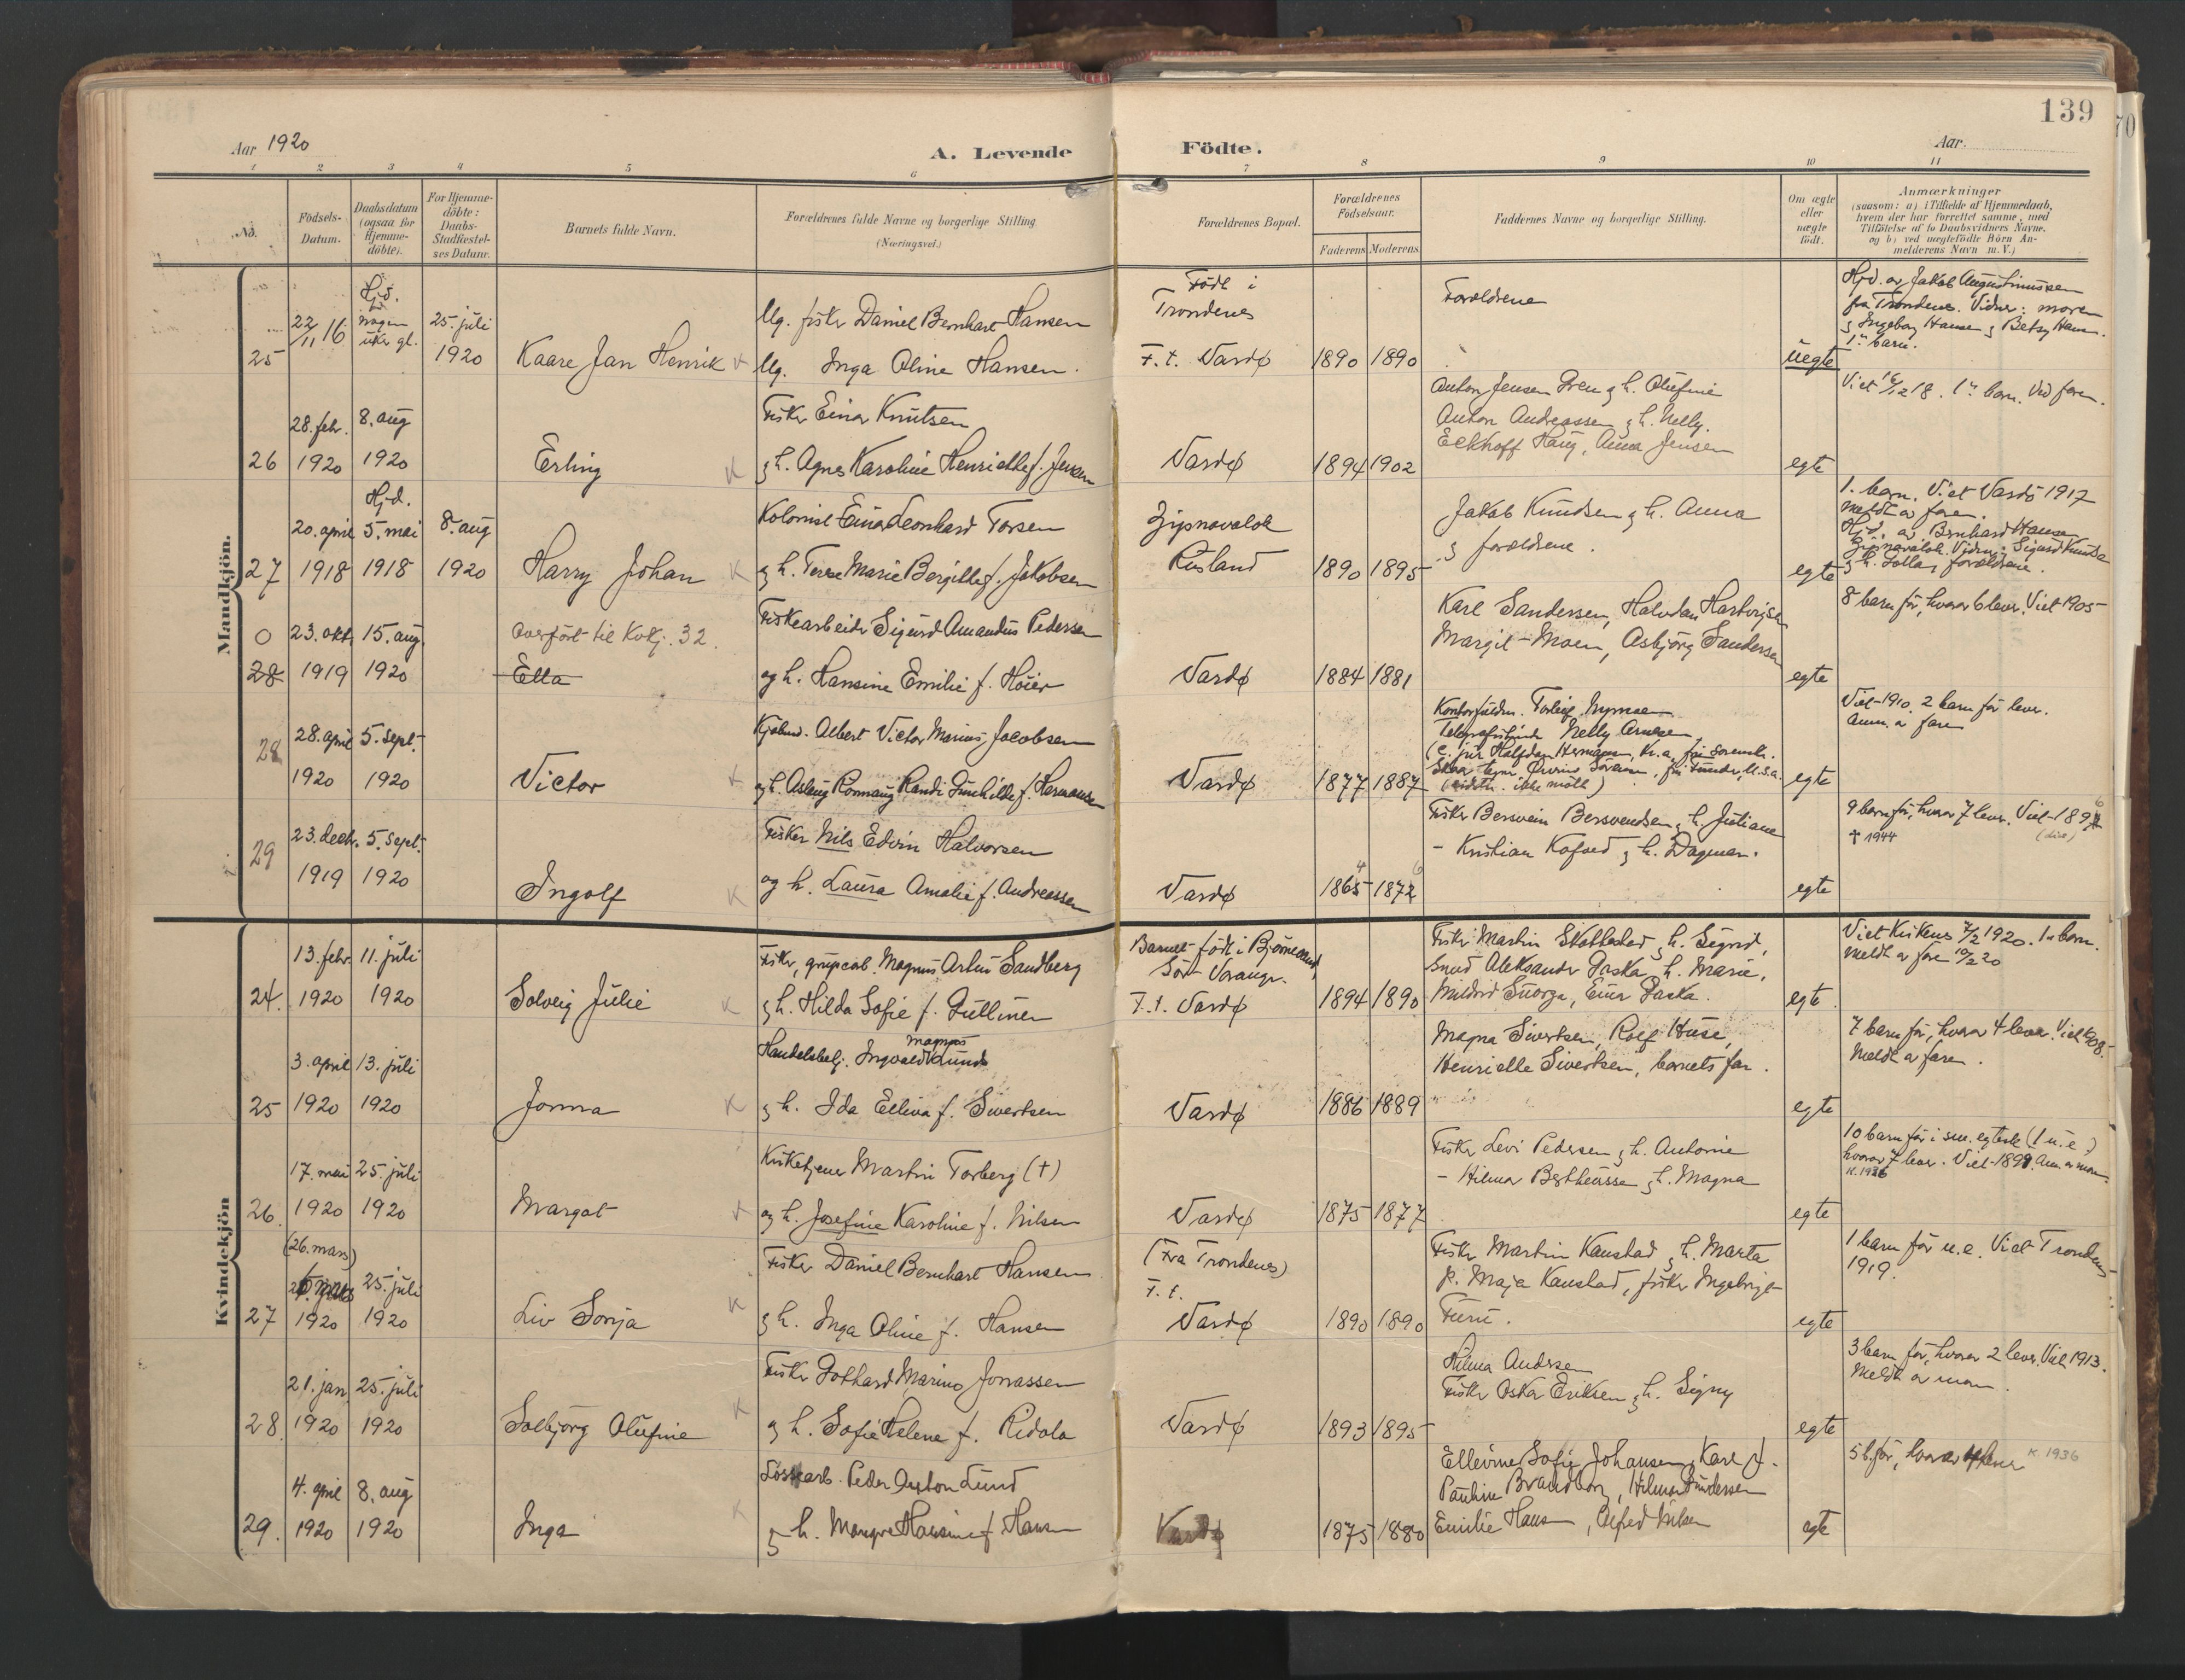 139
Aar 1920
A. Levende
Födte.
Aar.
1 2 3 4 5 6 7 8 9 10 11
No.
Födsels-Datum.
Daabsdatum (ogsaa for Hjemme-döbte).
For Hjemme-döbte: Daabs-Stadfæstel-ses Datum.
Barnets fulde Navn.
Forældrenes fulde Navne og borgerlige Stilling
(Næringsvei.)
Forældrenes Bopæl.
Forældrenes Födselsaar.
Faderens
Moderens
Faddernes Navne og borgerlige Stilling.
Om ægte eller uægte födt.
Anmærkninger
(saasom: a) i Tilfælde af Hjemmedaab, hvem der har forrettet samme, med Tilföielse af to Daabsvidners Navne, og b) ved uægtefödte Börn Anmelderens Navn m. V.)
Mandkjön.
25
22/11 16
Hjd.
nogen
uker gl.
25. juli
1920
Kaare Jan Henrik
Ug. fisker Daniel Bernhart Hansen
Ug. Inga Oline Hansen.
Födt i
Trondenes
F. t. Vardø
1890 1890
Forældrene
uegte
Hjd. av Jakob Augustinussen
fra Trondenes. Vidner: moren
g Ingeborg Hansen g Betsy Hans.
1ste barn.
26
28. febr.
1920
8. aug
1920
Erling
Fisker Einar Knutsen
g h. Agnes Karoline Henriette f. Jensen
Vardø
1894 1902
Anton Jensen Gren g h. Olufine
Anton Andreassen g h. Nelly.
Eckhoff Haug, Anna Jensen
egte
Viet 16/12 18. 1ste barn. Ved faren.
27
20. april
1918
Hjd.
5. mai
1918
8. aug
1920
Harry Johan
Kolonist Einar Leonhard Torsen
g h. Terese Marie Bergitte f. Jakobsen
Zipnavolok
Rusland
1890 1895
Jakob Knudsen g h. Anna
g forældrene.
egte
1. barn. Viet Vardö 1917
Meldt av faren.
Hjd. av Bernhard Hansen
Zipnavolok. Vidner: Sigurd Knudsen
g h. Lolla g forældrene.
0
28
23. okt.
1919
15. aug.
1920
Overfört til Kvkj. 32.
Ella
Fiskearbeider Sigurd Amandus Pedersen
og h. Hansine Emilie f. Höier
Vardø
1884 1881
Karl Sandersen, Halvdan Hartvigsen
Margit Moen, Asbjörg Sandersen
egte
8 barn för, hvorav 6 lever. Viet 1905
28
28. april
1920
5. sept.
1920
Victor
Kjöbmd. Albert Victor Marius Jacobsen
g h. Aslaug Ronnaug Randi Gunhilde f. Hermansen
Vardø
1877 1887
egte
Viet 1910. 2 barn för lever.
Anm. av faren
29
23. decbr.
1919
5. sept.
1920
Ingolf
Fisker Nils Edvin Halvorsen
og h. Laura Amalie f. Andreassen
Vardø
1865 1872
Fisker Bersvein Bersvendsen g h. Juliane
- Kristian Kofoed g h. Dagmar.
egte
9 barn för, hvorav 7 lever. Viet 1896
† 1944
Kvindekjön
24.
13. febr.
1920
11. juli
1920
Solveig Julie
Fisker, grupearb. Magnus Artur Sandberg
g h. Hilda Sofie f. Gullinen
Barnet födt i Björnevand,
Sör-Varanger.
F. t. Vardø
1894 1890
Fisker Martin Skottestad g h. Sigrid,
Smed Aleksander Paska g h. Marie,
Mildrid Snorga, Einar Paska.
egte
Viet Kirkenes 7/2 1920. 1ste barn.
Meldt av faren 10/2 20
25
3. april
1920
13. juli
1920
Jorma
Handelsbetj. Ingvald Magnus Lunde
g h. Ida Elliva f. Sivertsen
Vardø
1886 1889
Magna Sivertsen, Rolf Huse,
Henrielle Sivertsen, barnets far.
egte
7 barn för, hvorav 4 lever. Viet 1908.
Meldt av faren.
26.
17. mai
1920
25. juli
1920
Margot
Kirketjener Martin Torberg (†)
og h. Josefine Karoline f. Nilsen
Vardø
1875 1877
Fisker Levi Pedersen g h. Antonie
- Hilmar Bertheussen g h. Magna
egte
10 barn för i sin egtesk. (1 u. e.)
hvorav 7 lever. Viet 1899. Anm av mor.
K. 1936
27
(26. mars)
1920
25. juli
1920
Liv Sonja
Fisker Daniel Bernhart Hansen
g h. Inga Oline f. Hansen
(Fra Trondenes)
F. t.
Vardø
1890 1890
Fisker Martin Kanstad g h. Marta
p. Maja Kanstad, fisker Ingebrigt
Furu.
egte
1 barn för u. e. Viet Trondenes
1919.
28.
21. jan.
1920
25. juli
1920
Solbjörg Olufine
Fisker Gothard Marino Jonassen
g h. Sofie Helene f. Ridola
Vardø
1893 1895
Hilma Andersen
Fisker Oskar Eriksen g h. Signy
egte
3 barn för, hvorav 2 lever. Viet 1913.
Meldt av mor.
29.
4. april
1920
8. aug
1920
Inga
Lossearb. Peder Anton Lund
g h. Hansine f. Hansen
Vardø
1875 1880
Ellevine Sofie Johansen, Karl J.
Pauline Brandborg, Hilmar Gundersen
Emilie Hansen, Alfred Nilsen
egte
5 b. för, hvorav 4 lever
K. 1936